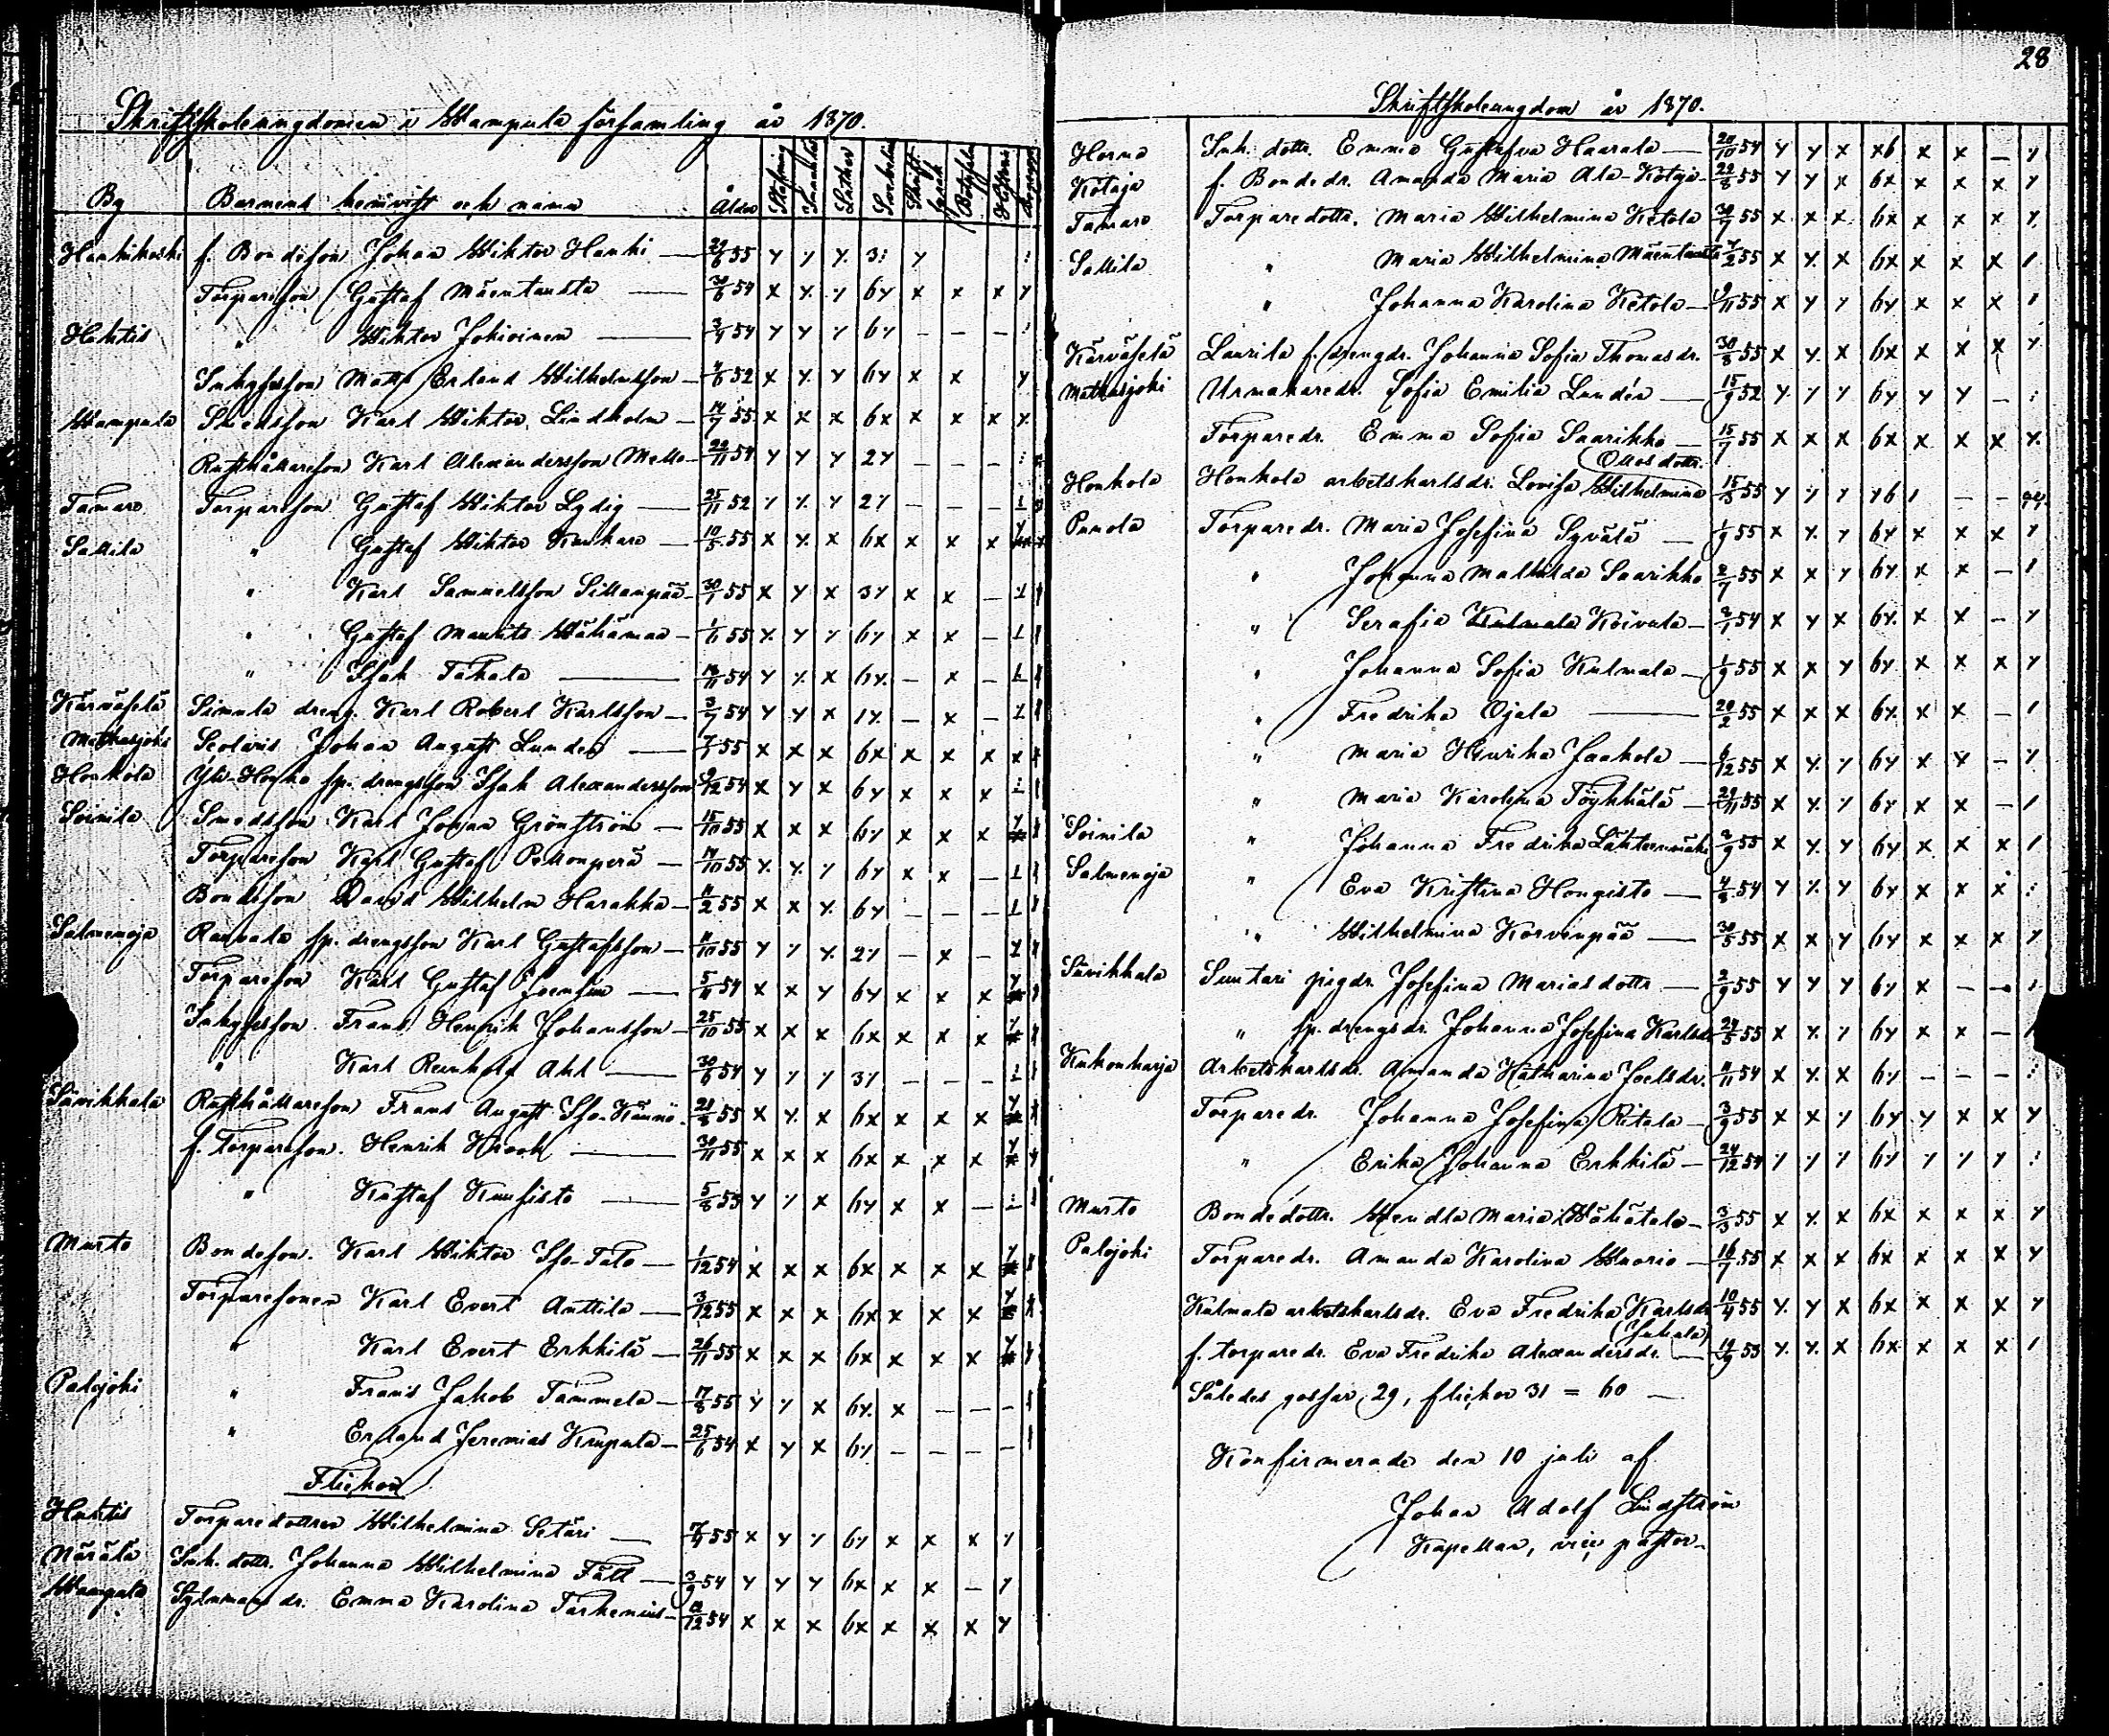 Skriftskoleungdomen i Wampula församling år 1870.
By Barnens hemvist och namn Ålder Stafning Innanläs Luther Svebelius Skrift språk Botpsalm
Hankikoski f. Bondeson Johan Wiktor Hanki — 29/6 55 x x x 3x x
Torpareson Gustaf Mäentausta — 30/6 54 x x x 6x x x x x
Hahtis " Wiktor Johivinen — 3/4 54 x x x 6x – – –
Inhysesson Matts Erland Wilhelmsson — 4/6 52 x x x 6x x x x
Wampula Smedsson Karl Wiktor Lindholm — 14/7 55 x x x 6x x x x x
Rusthållareson Karl Alexandersson Mello — 22/11 54 x x x 2x – – –
Tamare Torpareson Gustaf Wiktor Lydig — 25/11 52 x x x 2x – – –
Sallila " Gustaf Wiktor Kankare — 10/5 55 x x x 6x x x x
" Karl Samuelsson Sillanpää — 30/1 55 x x x 3x x x –
" Gustaf Maurits Wähämaa — 1/6 55 x x x 6x x x –
" Isak Takala — 14/11 54 x x x 6x – x –
Kärväselä Simula dreng. Karl Robert Karlsson — 3/7 54 x x x 1x – x –
Matkusjoki Scolaris Johan August Lunden — 7/5 55 x x x 6x x x x x
Honkola Yli-Honko sp. drengsson Isak Alexandersson 9/12 54 x x x 6x x x x
Soinila Smedsson Karl Johan Grönström — 15/10 55 x x x 6x x x x
Torpareson Karl Gustaf Peltonperä — 14/10 55 x x x 6x x x –
Bondeson David Wilhelm Harakka — 11/2 55 x x x 6x – – –
Salmenoja Rauvala sp. drengsson Karl Gustafsson — 11/10 55 x x x 2x – x –
Torpareson Karl Gustaf Joensuu — 5/11 54 x x x 6x x x x
Inhysesson Frans Henrik Johansson — 25/10 55 x x x 6x x x x
" Karl Reinhold Ahl — 30/6 54 x x x 3x – – –
Sävikkala Rusthållareson Frans August Iso-Kännö — 21/8 55 x x x 6x x x x
f. Torpareson. Henrik Krook — 30/11 55 x x x 6x x x x
" Kustaf Kuusisto — 5/8 55 x x x 6x x x –
Murto Bondeson. Karl Wiktor Iso-Talo — 1/12 54 x x x 6x x x x
Torparesonen Karl Evert Anttila — 3/12 55 x x x 6x x x x
" Karl Evert Erkkilä — 26/11 55 x x x 6x x x x
Palojoki " Frans Jakob Tammela — 17/8 55 x x x 6x x – – –
" Erland Jeremias Krupula — 25/6 54 x x x 6x – – – –
Flickor
Hahtis Torparedottren Wilhelmina Setäri — 7/4 55 x x x 6x x x x x
Närälä Inh. dottr. Johanna Wilhelmina Fält — 3/9 54 x x x 6x x x – x
Wampula Sytnman dr. Emma Karolina Tarkenius — 12/12 54 x x x 6x x x x x
28
Skriftskoleungdom år 1870.
Horna Inh. dottr. Emma Gustafva Haarala — 20/10 54 x x x x6 x x – x
Kotaja f. Bondedr. Amanda Maria Ala-Kotaja — 22/8 55 x x x 6x x x x x
Tamare Torparedottr. Maria Wilhelmina Ketola 30/7 55 x x x 6x x x x x
Sallila " Maria Wilhelmina Mäentausta 4/2 55 x x x 6x x x x
" Johanna Karolina Ketola — 9/11 55 x x x 6x x x x
Kärväselä Laurila f. drengdr. Johanna Sofia Thomasdr. 30/8 55 x x x 6x x x x x
Matkusjoki Urmakaredr. Sofia Emilia Lundén — 15/9 52 x x x 6x x x –
Torparedr. Emma Sofia Saarikko — 15/7 55 x x x 6x x x x x
Honkola Honkola arbetskarlsdr. Lovisa Wilhelmina Ottos dottr. 15/5 55 x x x x6 – –
Punola Torparedr. Maria Josefina Syvälä — 1/9 55 x x x 6x x x x x
" Johanna Mathilda Saarikko 2/7 55 x x x 6x x x –
" Serafia Kulmala Koivula — 2/1 54 x x x 6x x x – x
" Johanna Sofia Kulmala — 1/9 55 x x x 6x x x x x
" Fredrika Ojala — 20/2 55 x x x 6x x x –
" Maria Henrika Jaakola — 6/12 55 x x x 6x x x – x
" Maria Karolina Töykkälä — 29/11 55 x x x 6x x x –
Soinila " Johanna Fredrika Lähteenmäki 2/9 55 x x x 6x x x x
Salmenoja " Eva Kristina Hongisto — 4/8 54 x x x 6x x x x
" Wilhelmina Korvenpää — 30/5 55 x x x 6x x x x x
Sävikkala Suntari pigdr. Josefina Mariasdottr — 2/9 55 x x x 6x x – –
" sp. drengsdr. Johanna Josefina Karlsdr. 24/5 55 x x x 6x x x –
Kukonharja Arbetskarlsdr. Amanda Katharina Joelsdr. 11/11 54 x x x 6x – – –
Torparedr. Johanna Josefina Ritala — 3/9 55 x x x 6x x x x x
" Erika Johanna Erkkilä — 24/12 54 x x x 6x x x x
Murto Bondedottr. Wendla Maria Wähätalo — 3/3 55 x x x 6x x x x x
Palojoki Torparedr. Amanda Karolina Wuorio — 16/7 55 x x x 6x x x x x
Kulmala arbetskarlsdr. Eva Fredrika Karlsdr 10/4 55 x x x 6x x x x x
f. torparedr. Eva Fredrika Alexandersdr. (Juhala) — 19/9 53 x x x 6x x x x
Således gossar 29, flickor 31 = 60 —
Konfirmerade den 10 juli af
Johan Adolf Lindström
Kapellan, vice pastor.